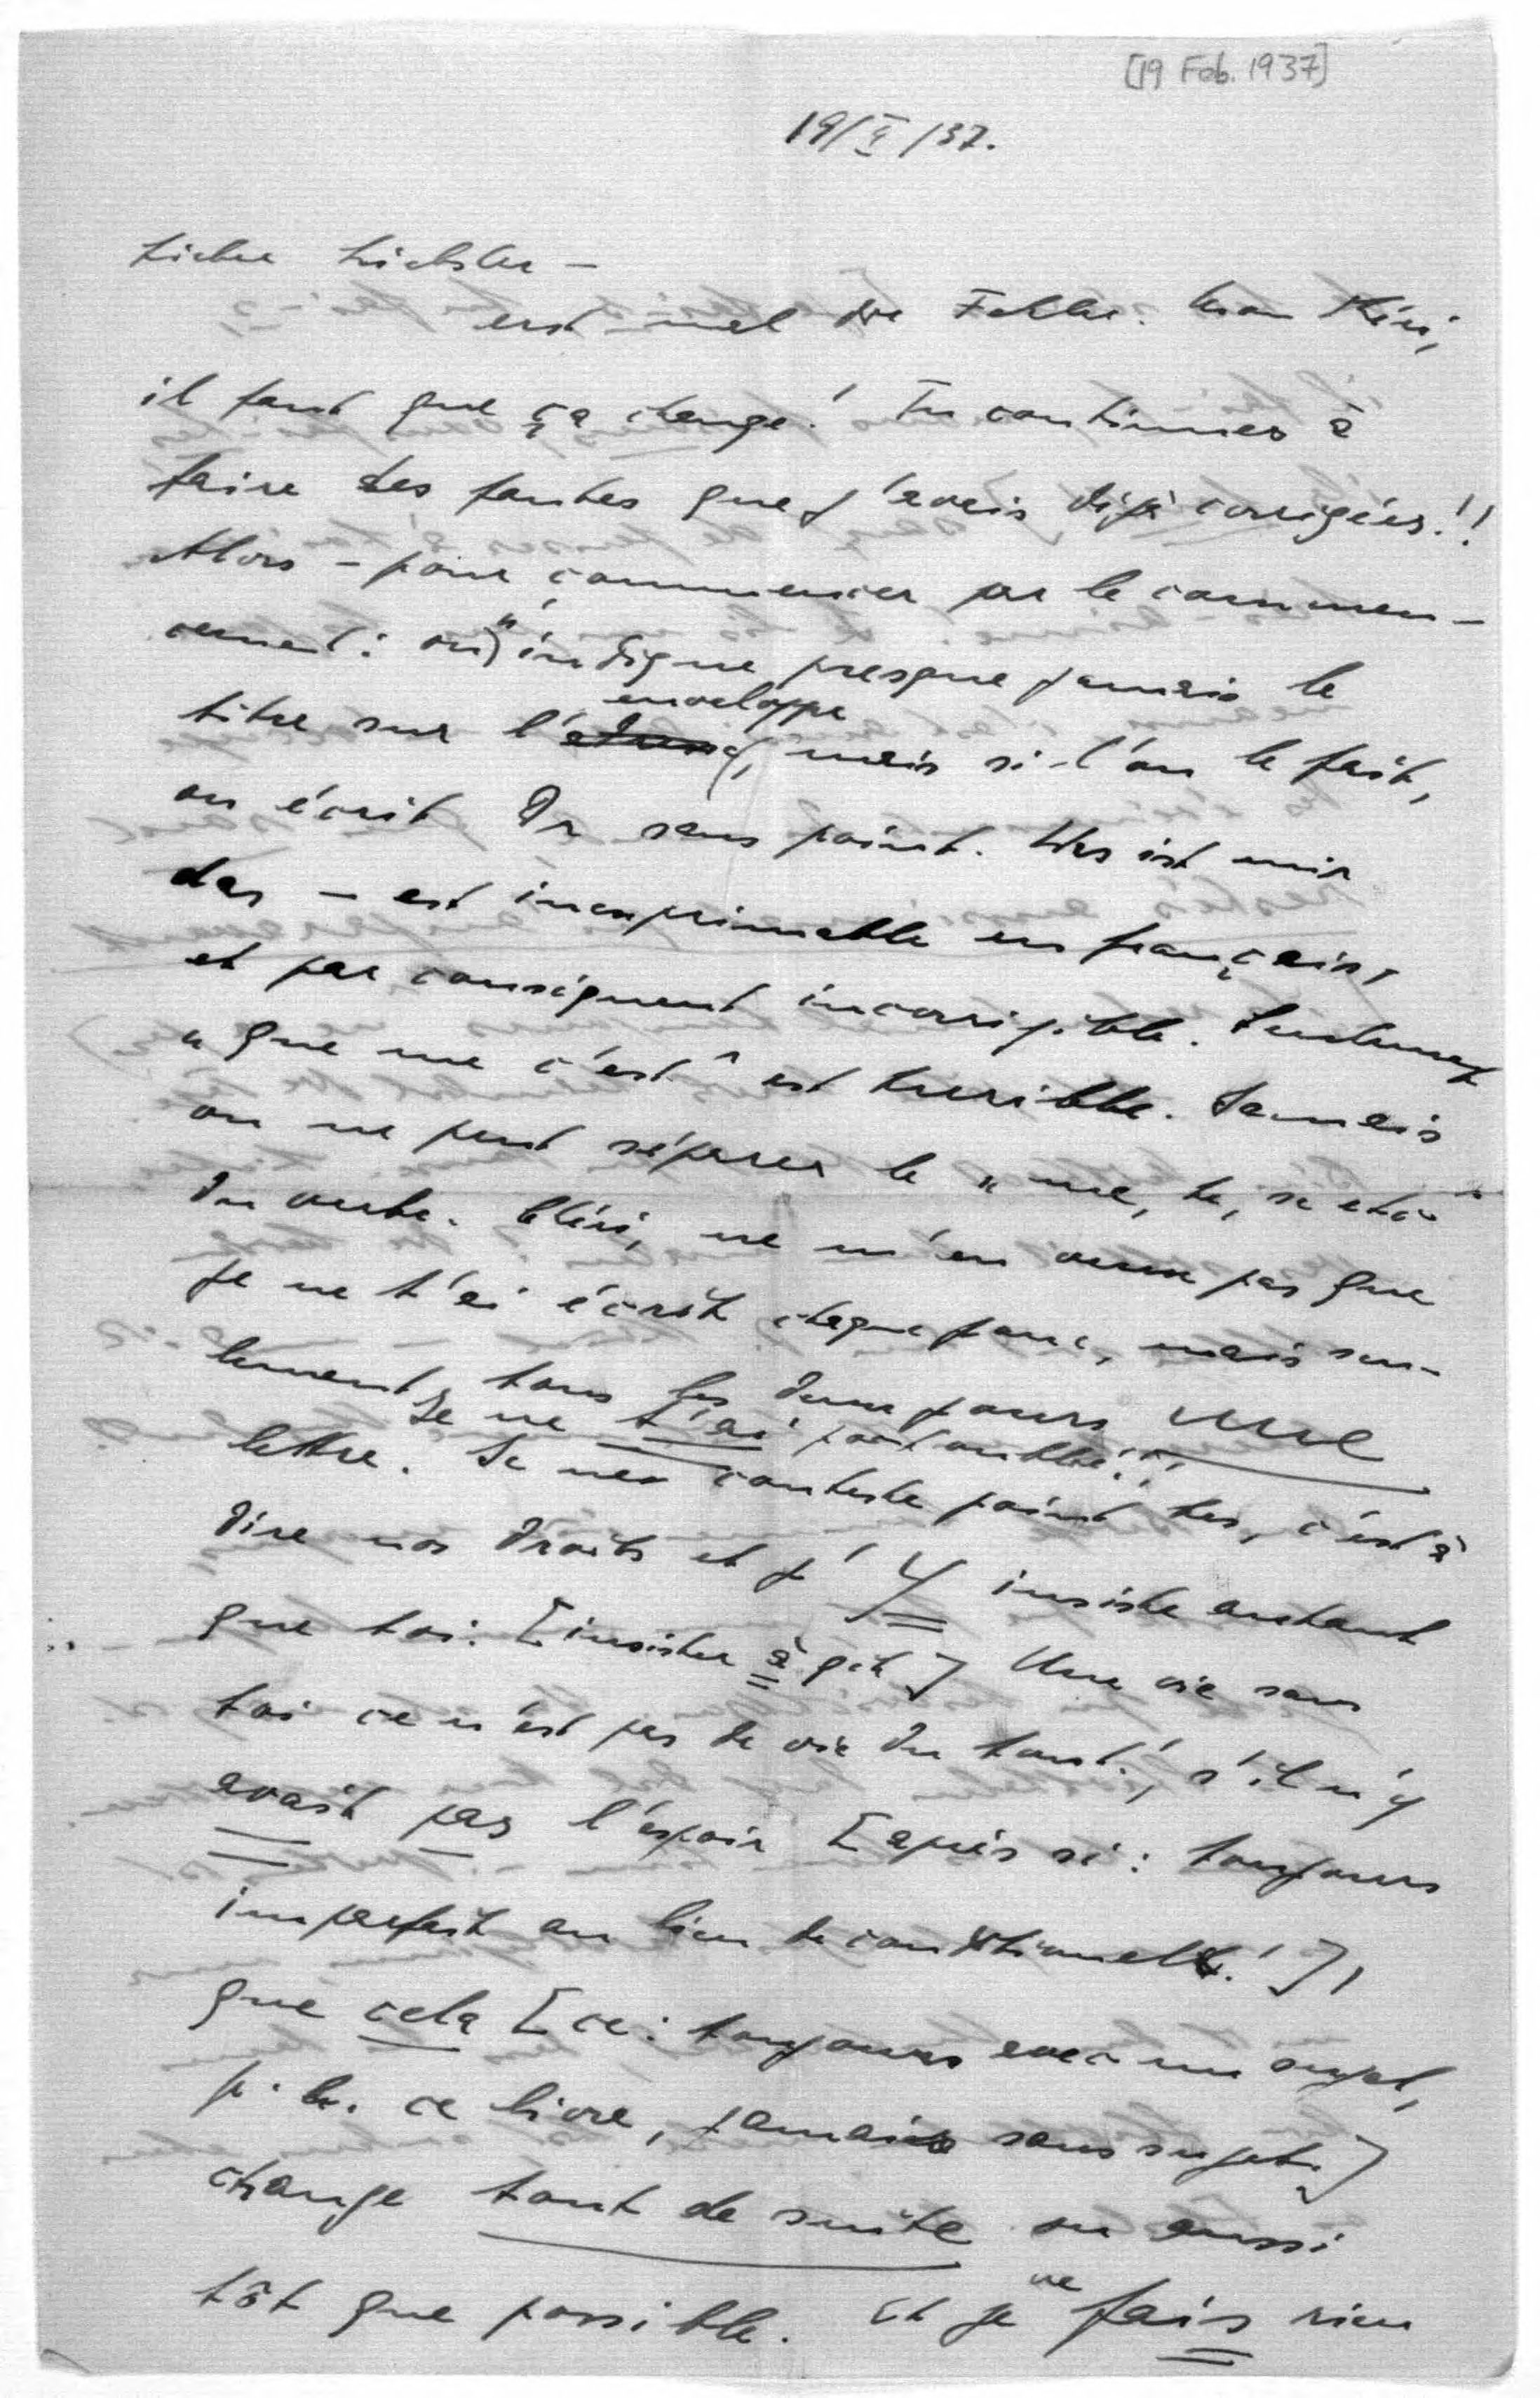 [19 Feb. 1937]
19/II/37.
Liebe Liebster —
erst mal die Fehler. Mon Chéri,
il faut que ça change! Tu continues à
faire des fautes que j'avais déjà corrigées!!
Alors — pour commencer par le commen-
cement: on indique presque jamais le
titre sur l'enveloppe, mais si l'on le fait,
on écrit Dr sans point. Was ist mir
das — est inexprimable en français,
et par conséquent incorrigible. Seulement
„que me c'est" est terrible. Jamais
on ne peut séparer le „me, te, se etc"
du verbe. Chéri, ne m'en veux pas que
je ne t'ai écrit chaque jour, mais seu-
lement tous les deux jours une
Je ne t'ai pas oublié!!
lettre. Je ne conteste point tes, c'est à
dire nos droits et j'y insiste autant
que toi. [insister à qch] Une vie sans
toi ce n'est pas de vie du tout!, s'il n'y
avait pas l'espoir [après si: toujours
imparfait au lieu de conditionnel!],
que cela [ce: toujours avec un sujet,
p. ex. ce livre, jamais sans sujet.]
change tout de suite ou aussi
tôt que possible. Et je ne fais rien